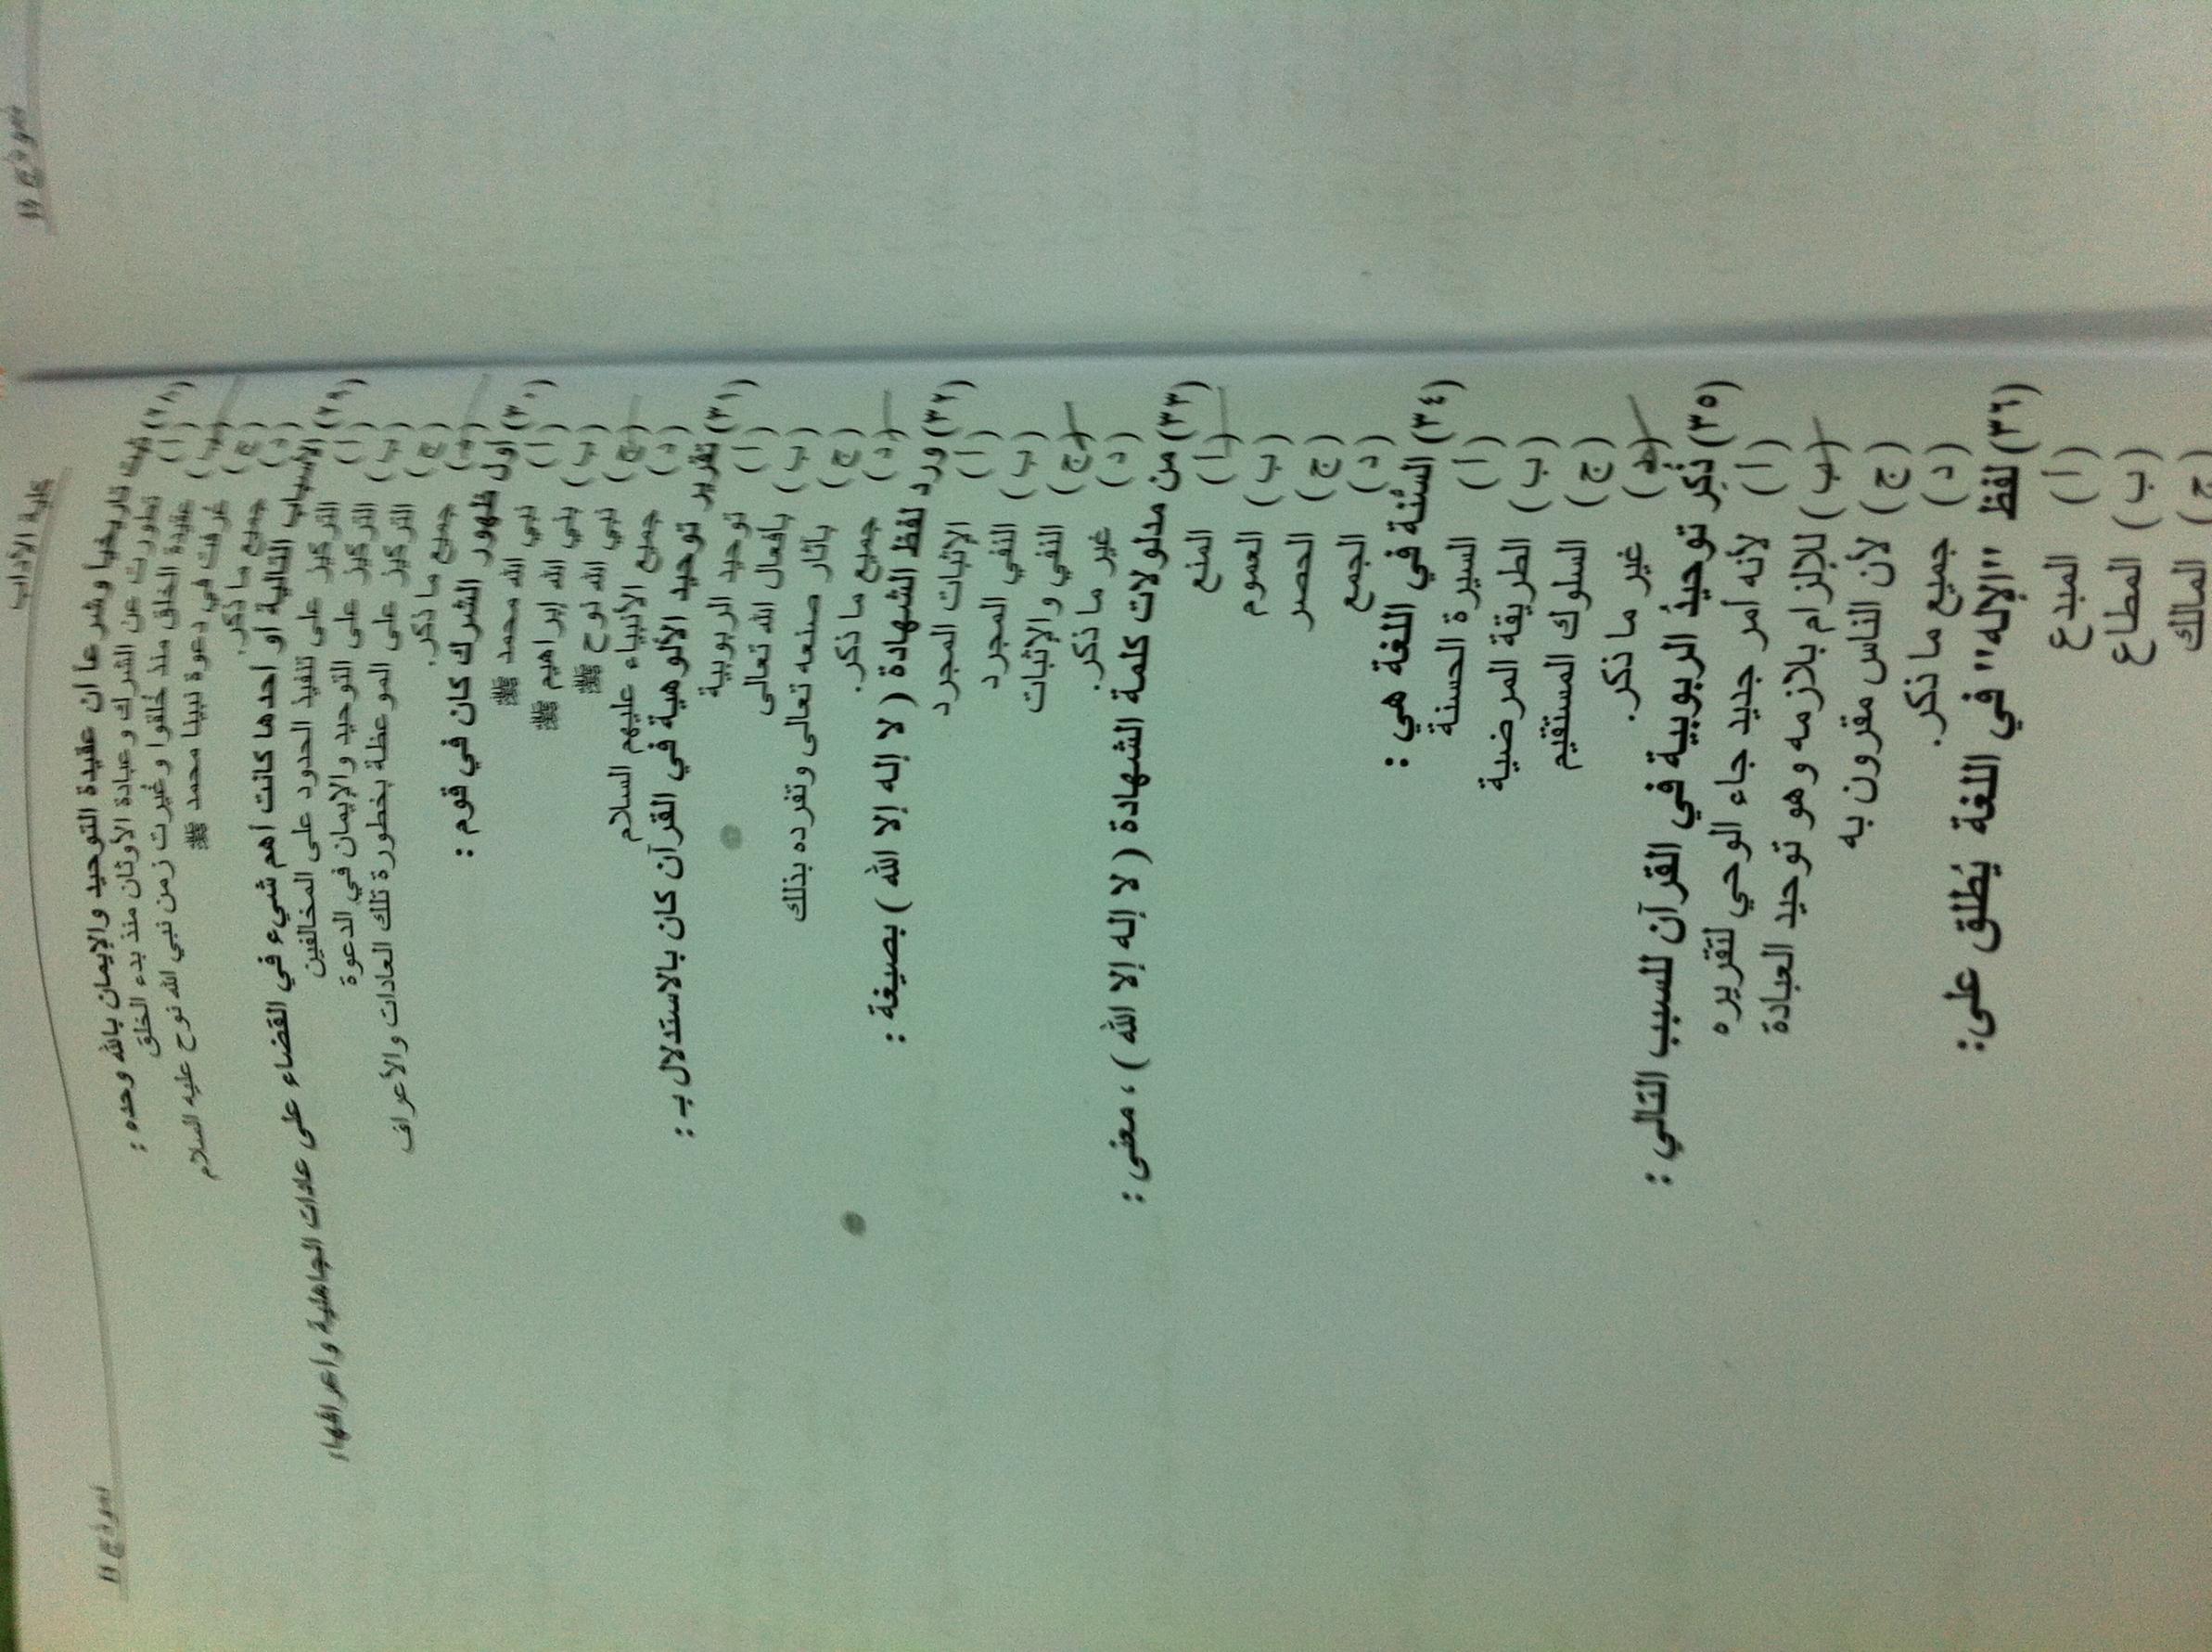 نموذج
كلية الآداب
نموذج
تاريخيا وشرعا ان عقيدة التوحيد والإيمان بالله وحده :
(أ) تطورت عن الشرك وعبادة الأوثان منذ بدء الخلق
(ب) عقيدة الخلق منذ خلقوا وغيرت زمن نبي الله نوح عليه السلام
(ج) عرفت في دعوة نبينا محمد ﷺ
(د) جميع ما ذكر.
(٢٩) الأسباب التالية أو أحدها كانت أهم شيء في القضاء على عادات الجاهلية وأعرافها:
(أ) التركيز على تنفيذ الحدود على المخالفين
(ب) التركيز على التوحيد والإيمان في الدعوة
(ج) التركيز على الموعظة بخطورة تلك العادات والأعراف
(د) جميع ما ذكر.
(٣٠) أول ظهور الشرك كان في قوم :
(أ) نبي الله محمد ﷺ
(ب) نبي الله إبراهيم ﷺ
(ج) نبي الله نوح ﷺ
(د) جميع الأنبياء عليهم السلام
(٣١) تقرير توحيد الألوهية في القرآن كان بالاستدلال بـ :
(أ) توحيد الربوبية
(ب) بأفعال الله تعالى
(ج) بآثار صنعه تعالى وتفرده بذلك
(د) جميع ما ذكر.
(٣٢) ورد لفظ الشهادة ( لا إله إلا الله ) بصيغة :
(أ) الإثبات المجرد
(ب) النفي المجرد
(ج) النفي والإثبات
(د) غير ما ذكر.
(٣٣) من مدلولات كلمة الشهادة ( لا إله إلا الله ) ، معنى :
(أ) المنع
(ب) العموم
(ج) الحصر
(د) الجمع
(٣٤) السُنة في اللغة هي :
(أ) السيرة الحسنة
(ب) الطريقة المرضية
(ج) السلوك المستقيم
(د) غير ما ذكر.
(٣٥) ذُكر توحيد الربوبية في القرآن للسبب التالي :
(أ) لأنه أمر جديد جاء الوحي لتقريره
(ب) للإلزام بلازمه وهو توحيد العبادة
(ج) لأن الناس مقرون به
(د) جميع ما ذكر.
(٣٦) لفظ "الإله" في اللغة يُطلق على:
(أ) المبدع
(ب) المطاع
(ج) المالك